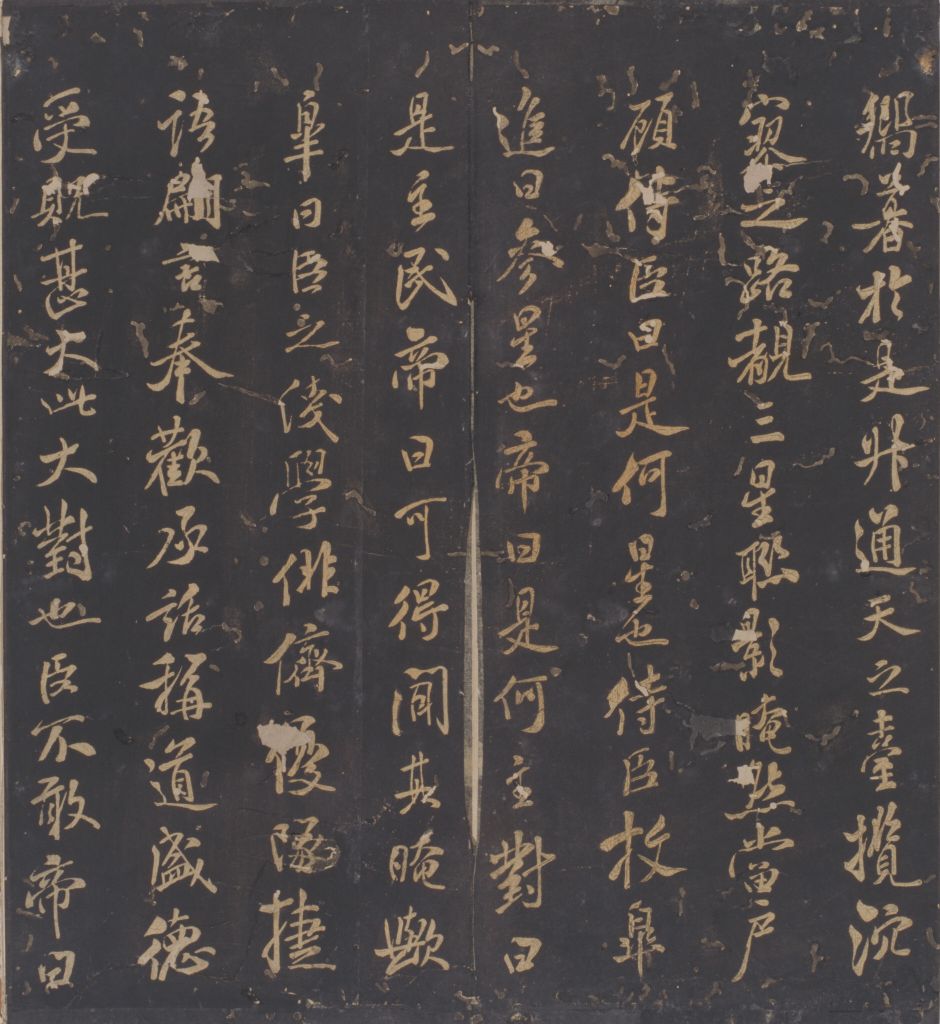 嚮著於是升通天之臺攬沉
寥之路覩三星聯影晻點當戶
顧侍臣曰是何星也侍臣枚皐
進曰參星也帝曰是何主對曰
是主民帝曰可得聞其晻歟
皐曰臣之淺學俳儕優隊捷
語翩言奉歡承話稱道盛德
受貺甚大此大對也臣不敢帝曰